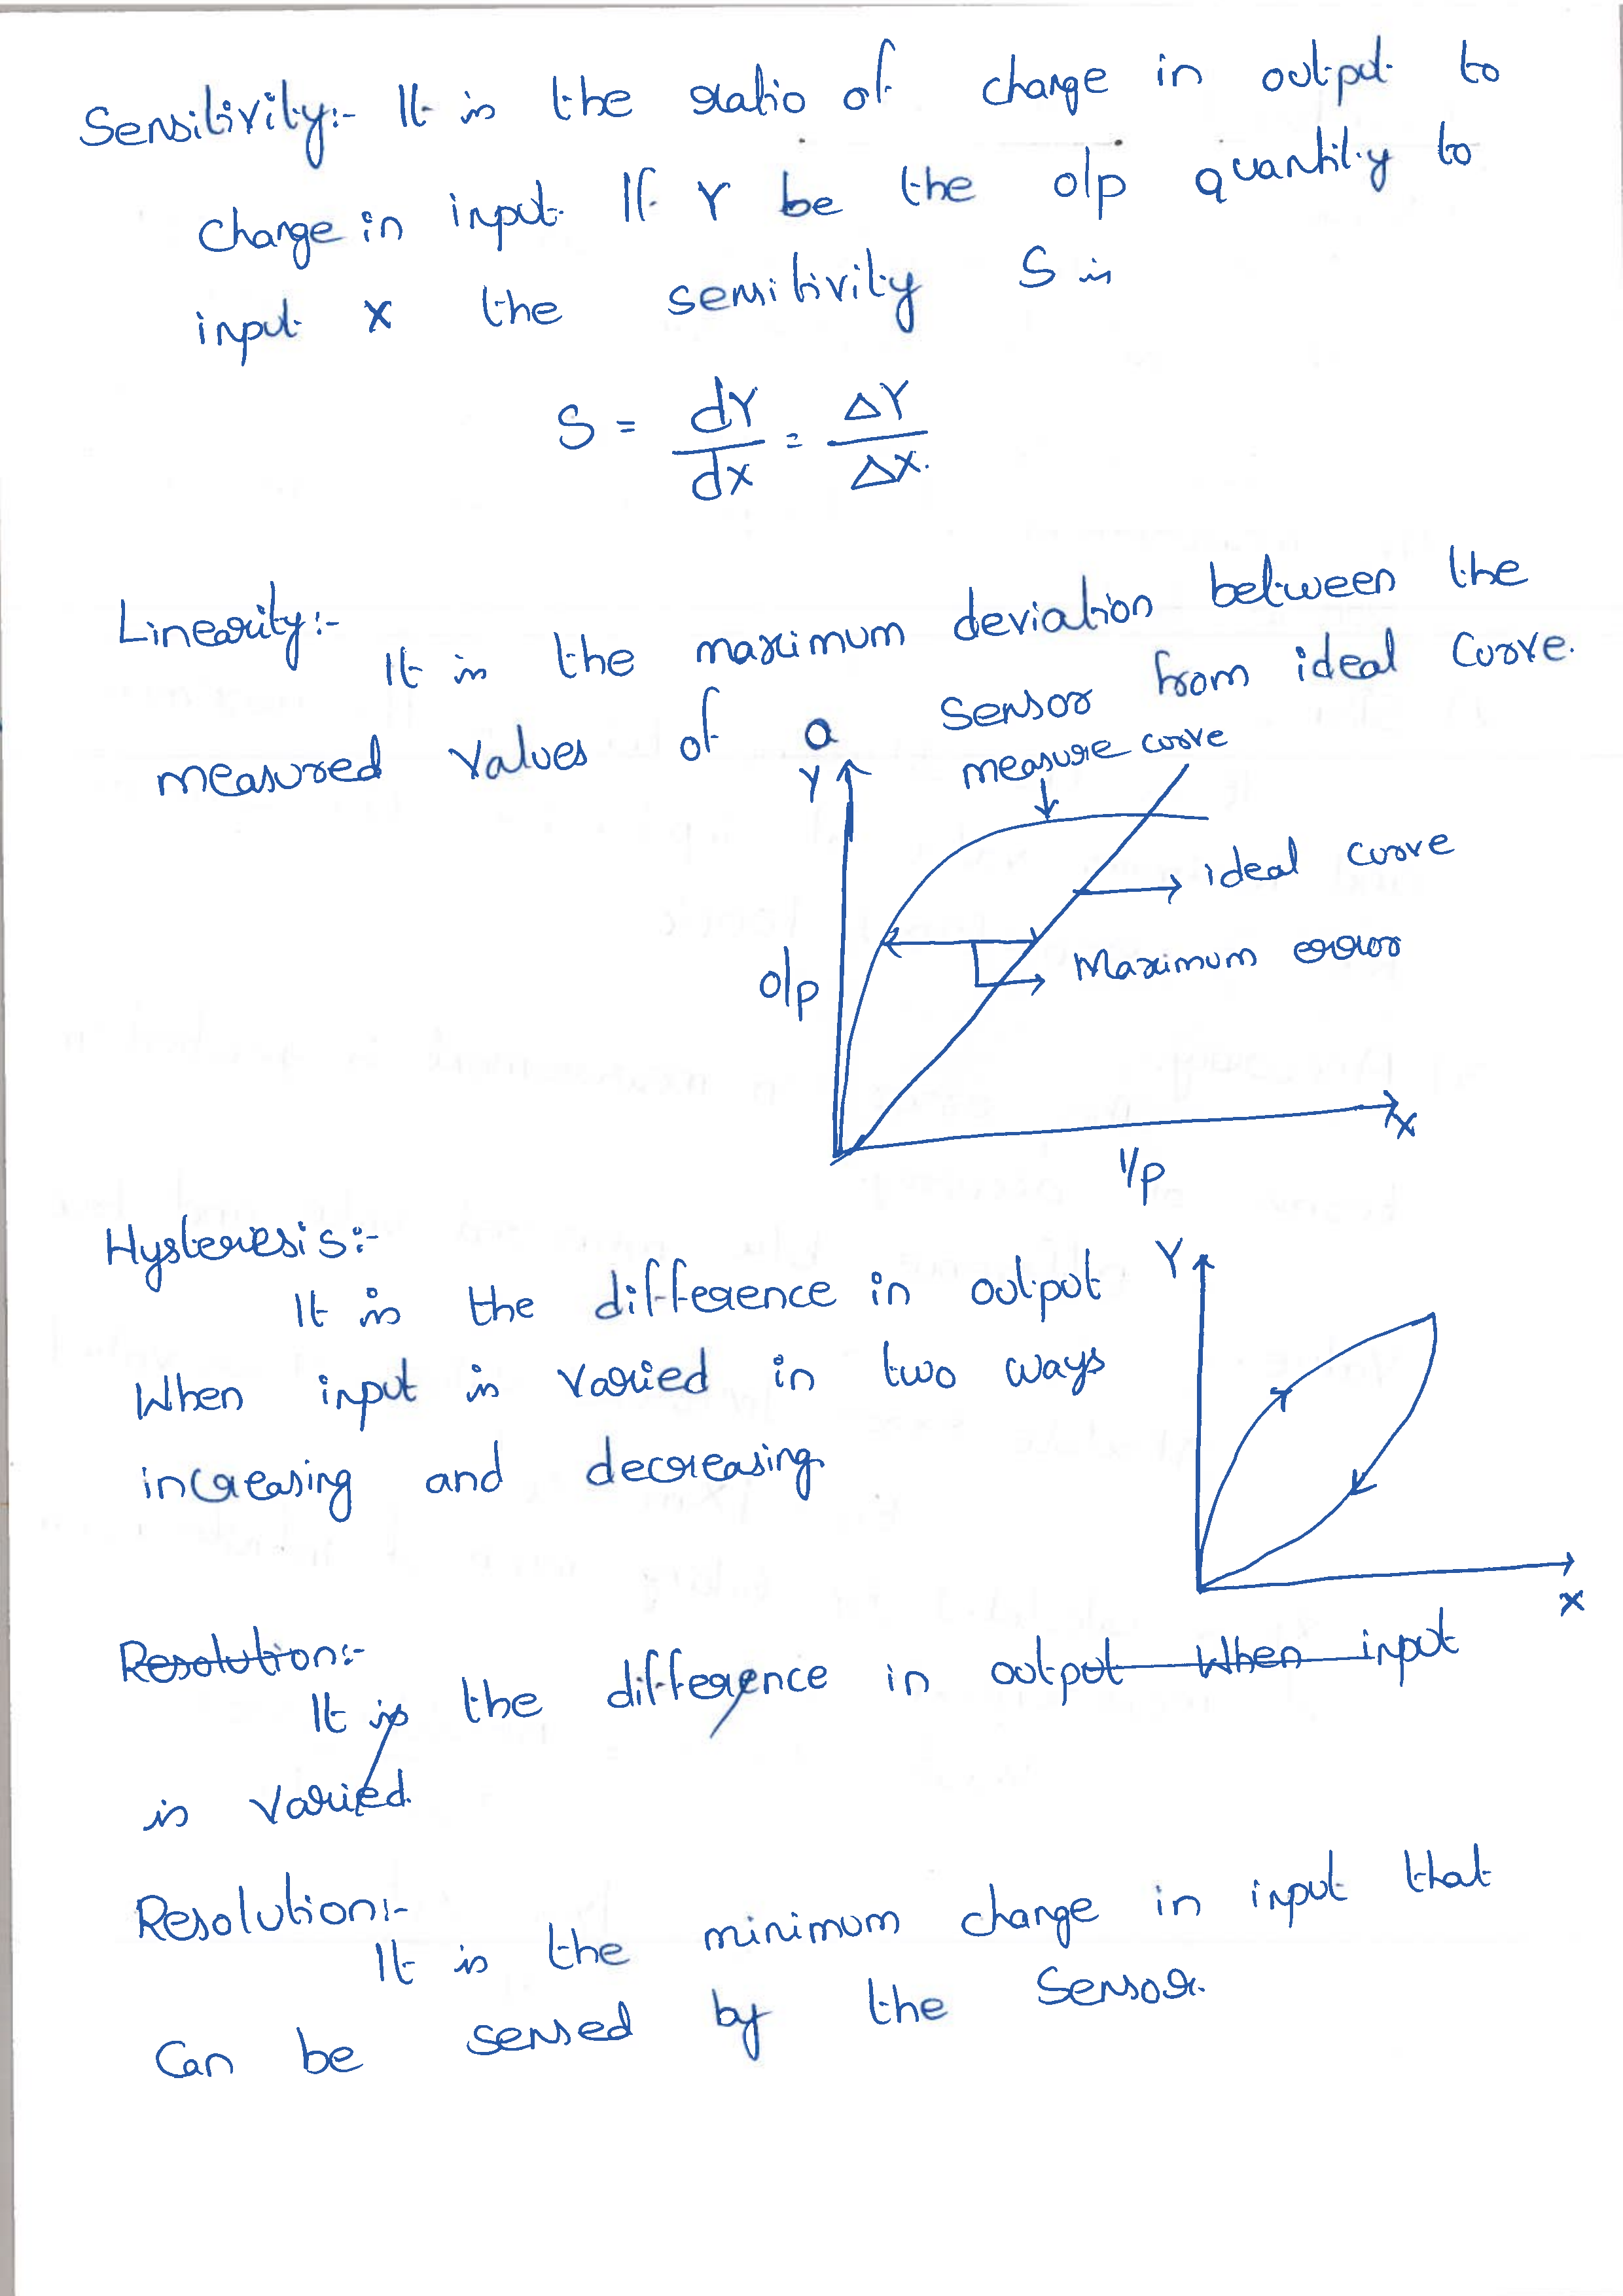 Sensitivity:- It is the ratio of change in output to
change in input. If Y be the o/p quantity to
input X the sensitivity S is
S = dY/dX = ΔY/ΔX.
Linearity:-
It is the maximum deviation between the
measured values of a sensor from ideal curve.
measure curve
Y
ideal curve
Maximum error
o/p
X
I/p
Hysteresis:-
It is the difference in output
When input is varied in two ways
increasing and decreasing.
Y
X
Resolution:-
It is the difference in output when input
is varied.
Resolution:-
It is the minimum change in input that
Can be sensed by the Sensor.